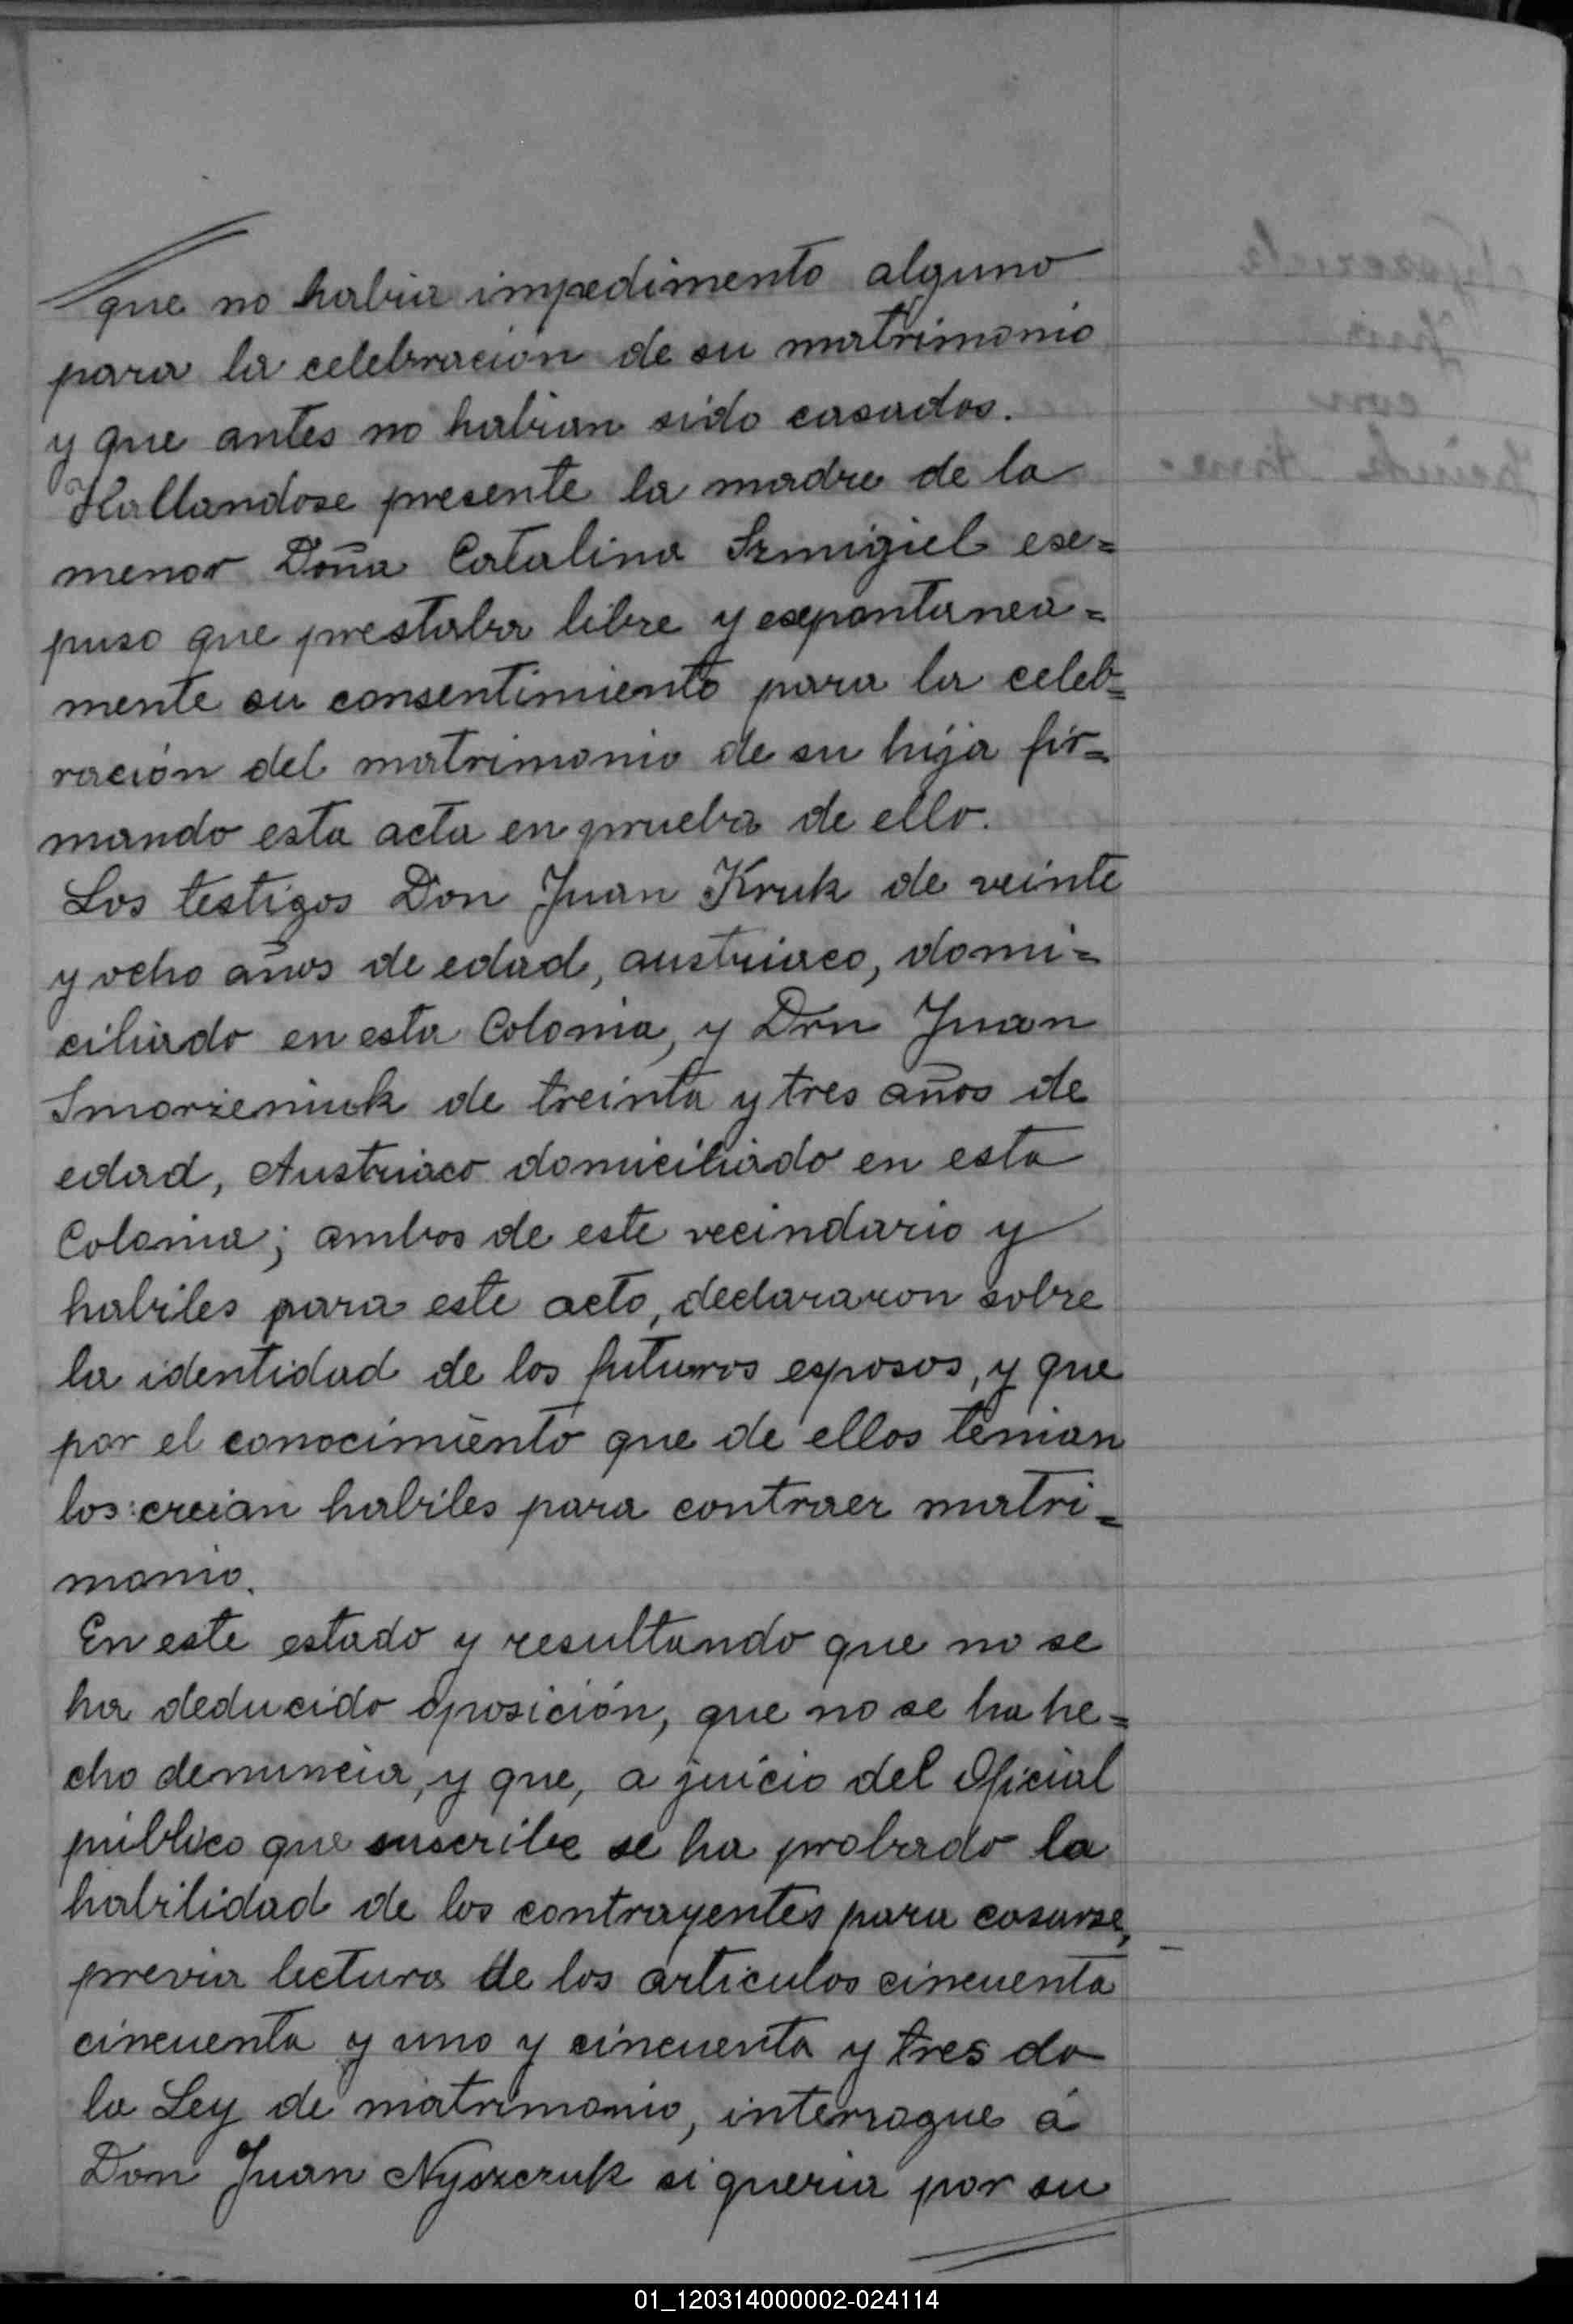 que no habia impedimento alguno
para la celebracion de su matrimonio
y que antes no habian sido casados.
Hallandose presente la madre de la
menor Doña Catalina Szmigiel exe=
puso que prestaba libre y expontanea=
mente su consentimiento para la celeb=
ración del matrimonio de su hija fir=
mando esta acta en prueba de ello.
Los testigos Don Juan Kruk de veinte
y ocho años de edad, austriaco, domi=
ciliado en esta Colonia, y Don Juan
Smorżeniuk de treinta y tres años de
edad, Austriaco domiciliado en esta
Colonia; ambos de este vecindario y
habiles para este acto, declararon sobre
la identidad de los futuros esposos, y que
por el conocimiento que de ellos tenian
los creian habiles para contraer matri=
monio.
En este estado y resultando que no se
ha deducido oposición, que no se ha he=
cho denuncia, y que, a juicio del Oficial
público que suscribe se ha probado la
habilidad de los contrayentes para casarse,
previa lectura de los articulos cincuenta
cincuenta y uno y cincuenta y tres da
la Ley de matrimonio, interrogue á
Don Juan Nyszczuk si queria por su
01_120314000002-024114